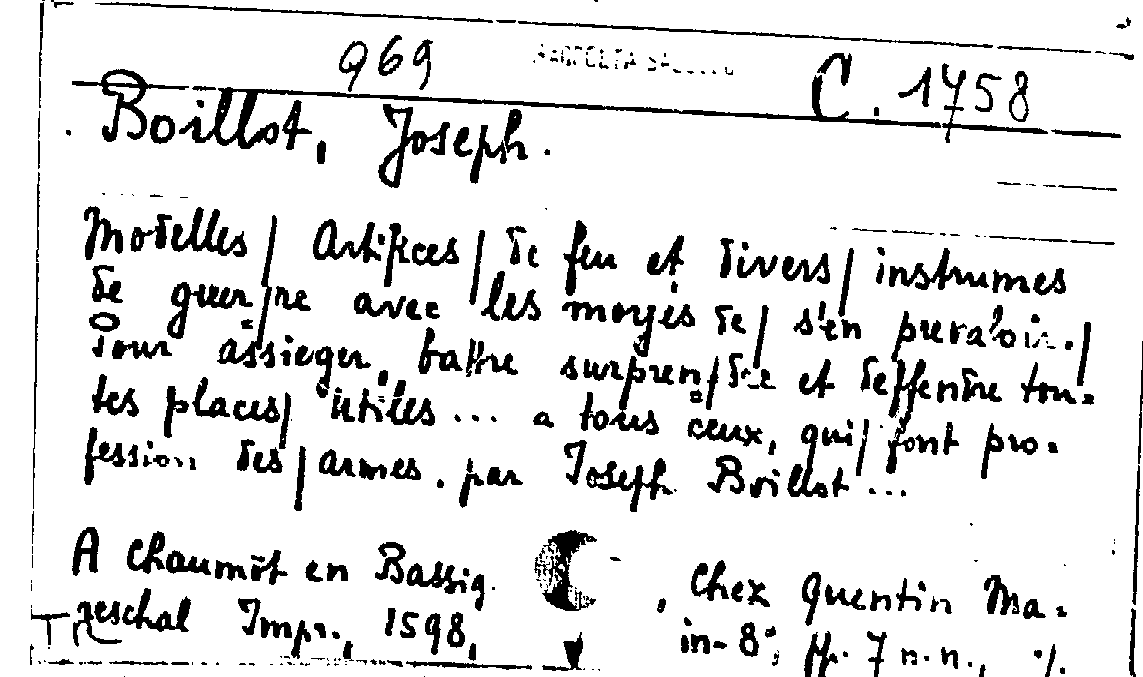 969 RACCOLTA C. 1758
Boillot, Joseph.
Modelles/ Artifices/ de feu et divers/ instrumes
de guer/re avec les moyẽs de/ s'en prevaloir./
Pour assieger, battre surpren/dre et deffendre tou=
tes places/ utiles... a tous ceux, qui/ font pro=
fession des/ armes. par Joseph Boillot...
A Chaumõt en Bassig. , Chez Quentin Ma=
reschal Impr., 1598, in-8°, ff. 7 n.n., %.